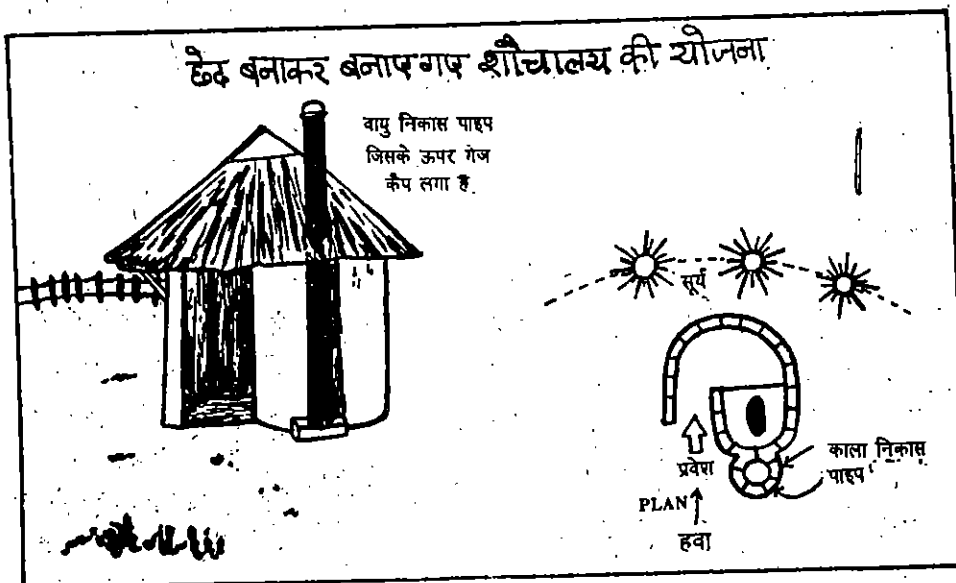 छेद बनाकर बनाए गए शौचालय की योजना
वायु निकास पाइप
जिसके ऊपर गेज
कैप लगा है
सूर्य
प्रवेश
PLAN
हवा
काला निकास
पाइप